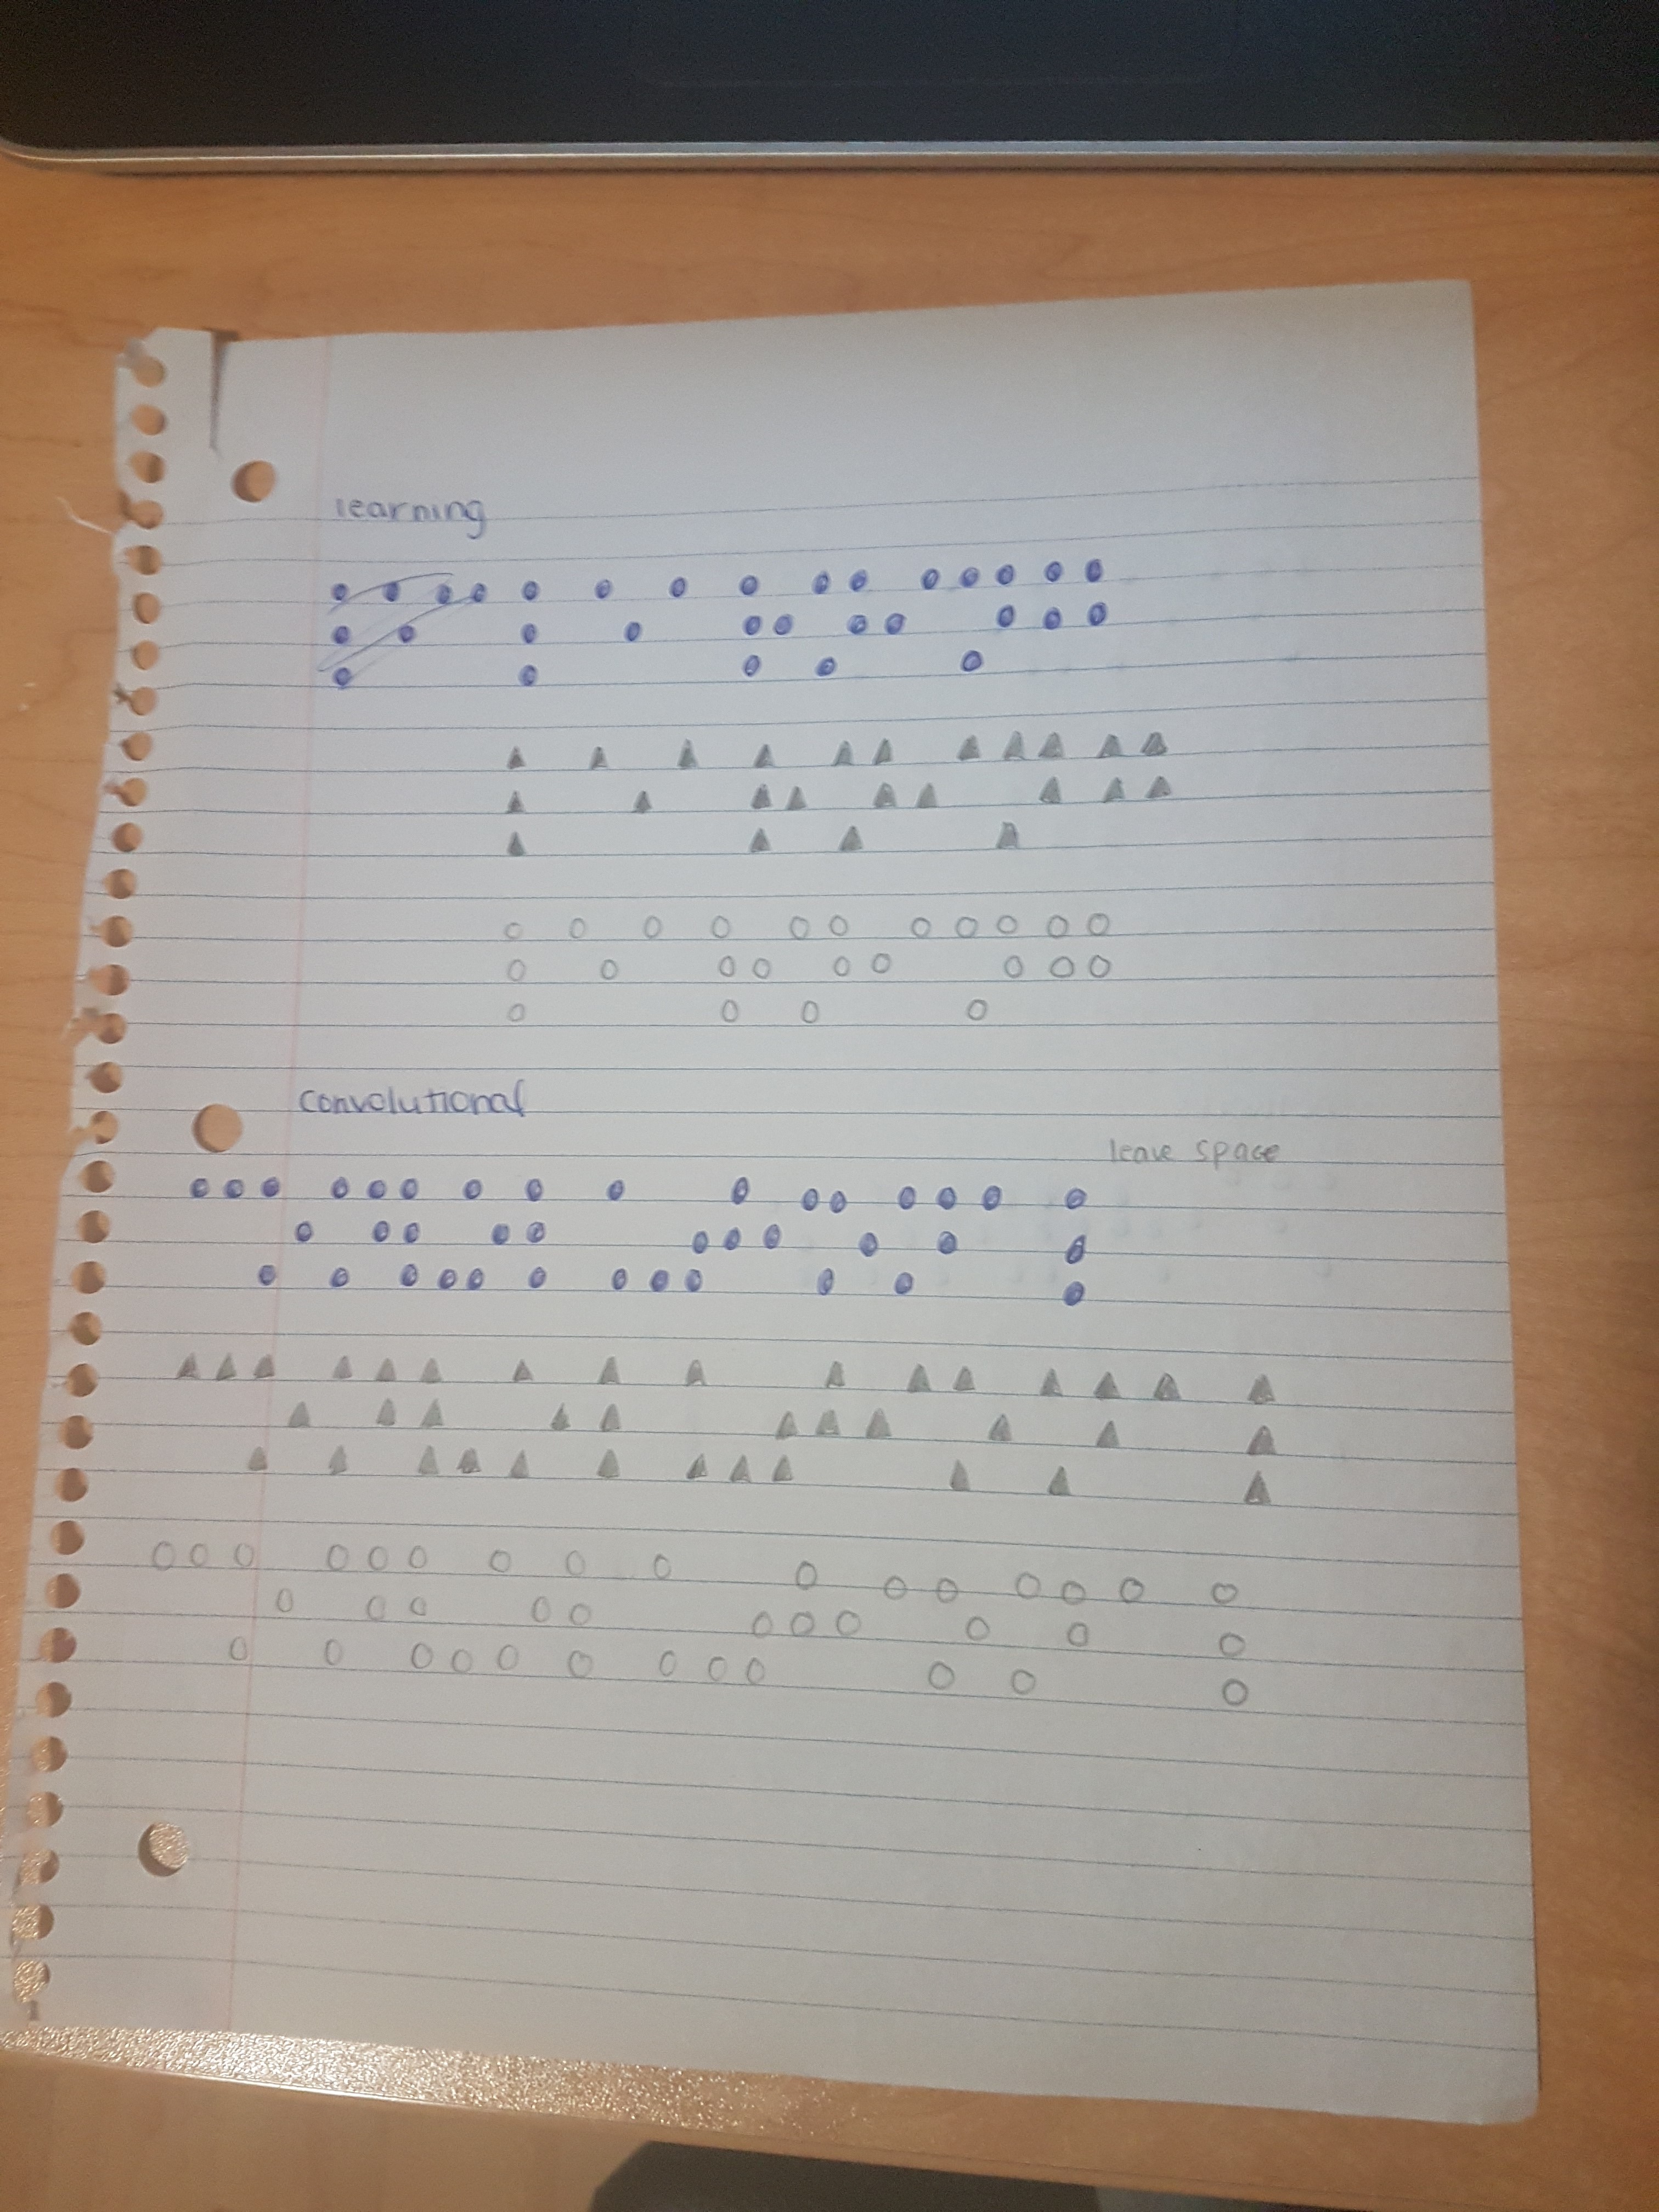 learning
convolutional
leave space